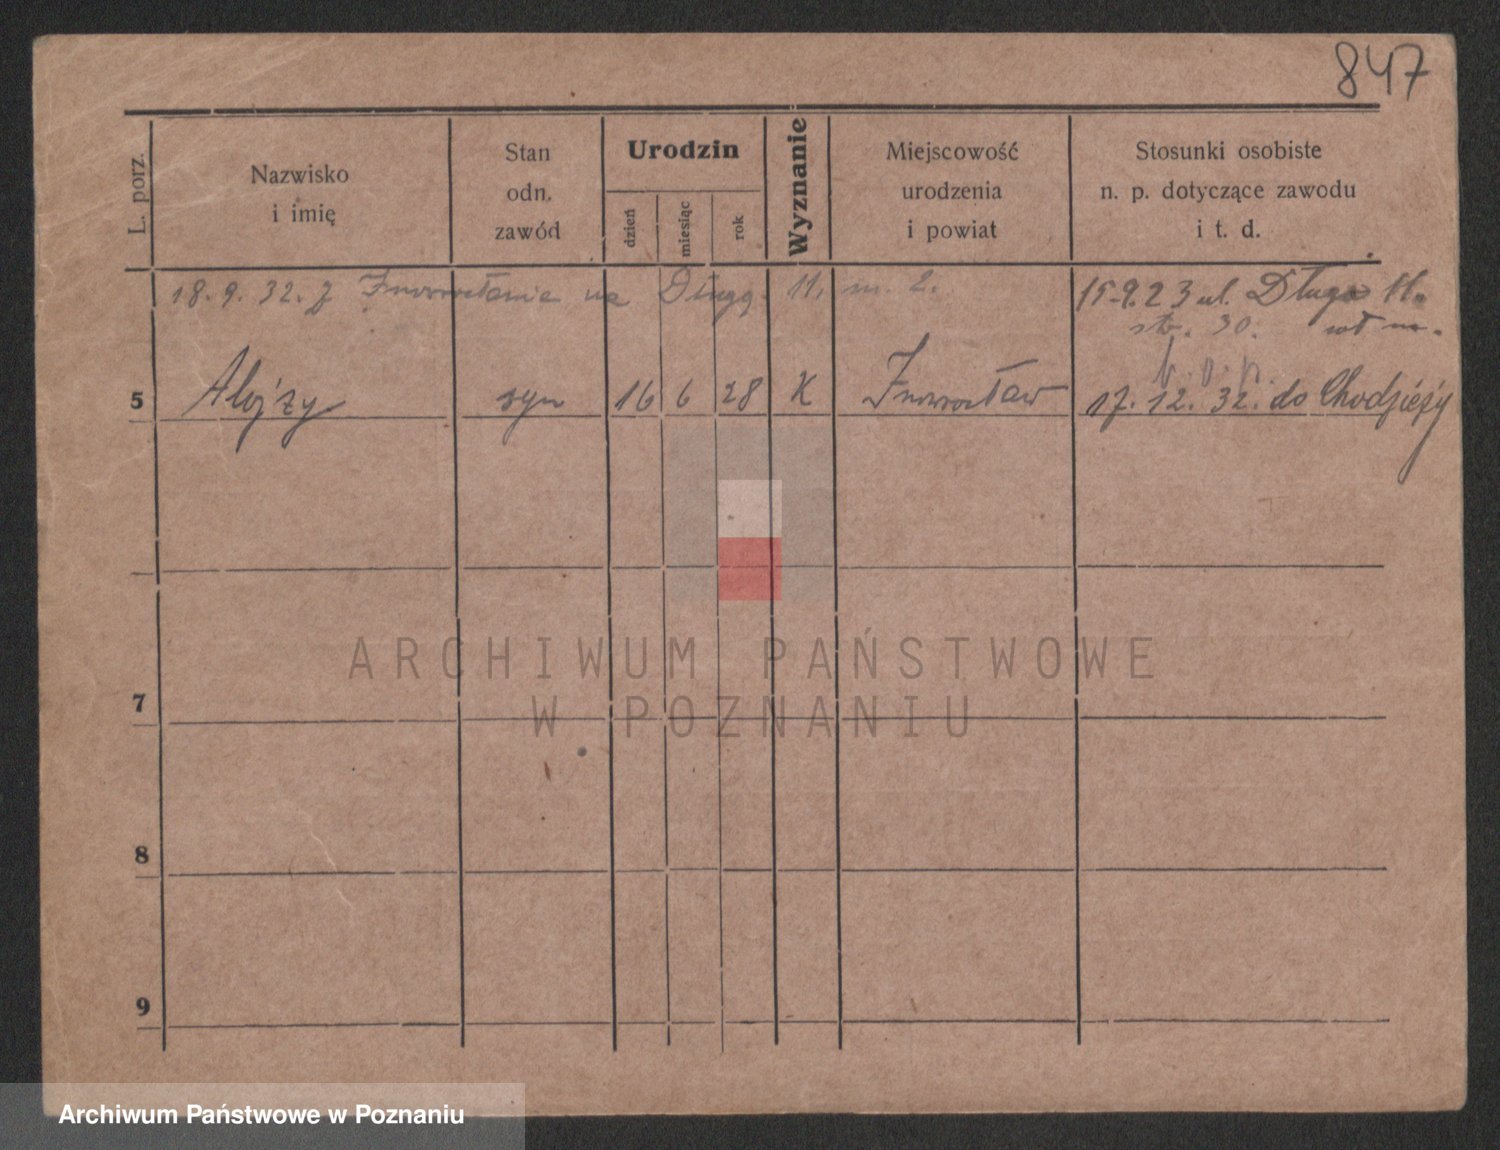 847
L. porz.
Nazwisko
i imię
Stan
odn.
zawód
Urodzin
dzień
miesiąc
rok
Wyznanie
Miejscowość
urodzenia
i powiat
Stosunki osobiste
n. p. dotyczące zawodu
i t. d.
18. 9. 32. z Inowrocławia na Długą 11, m. 2.
15.9.23 ul. Długa 11.
str. 30.
5 Alojzy syn 16 6 28 K Inowrocław 17. 12. 32. do Chodzieży
7
8
9
ARCHIWUM PAŃSTWOWE
W POZNANIU
Archiwum Państwowe w Poznaniu